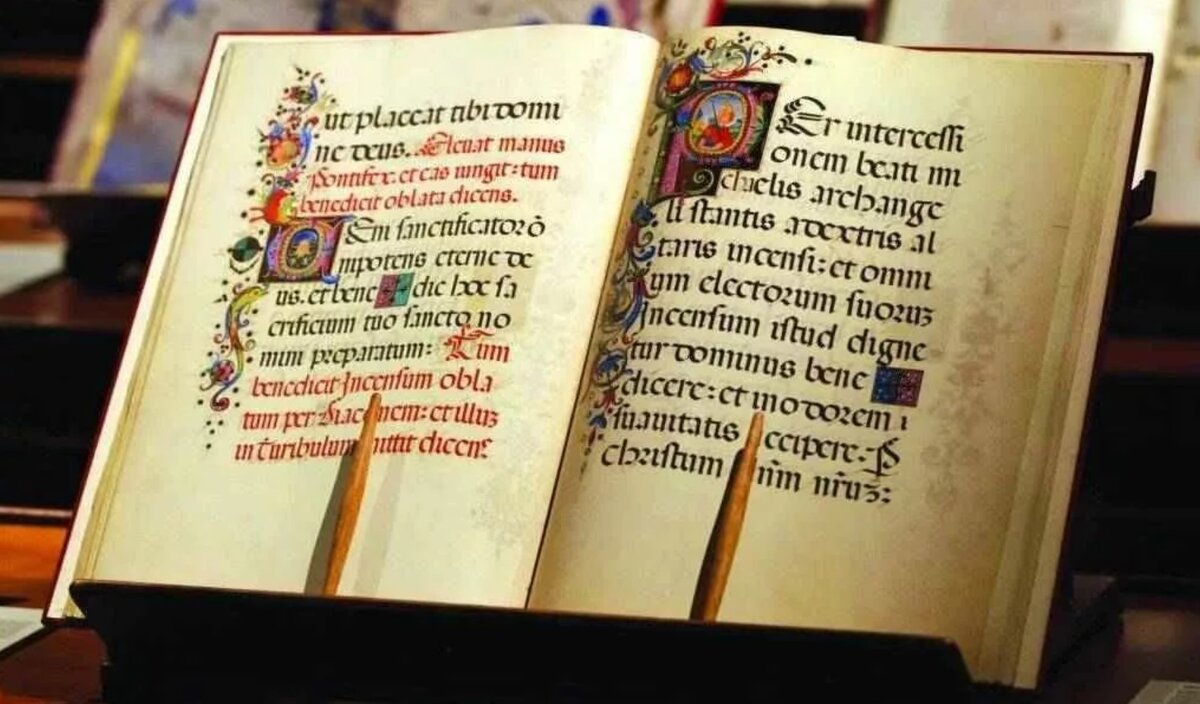 ut placeat tibi domi
ne deus. Eleuat manus
Pontifex. et eas iungit: tum
benedicit oblata dicens.
Em sanctificator õ
mnipotens eterne de
us. et bene dic hoc sa
crificium tuo sancto no
mini preparatum: Tum
benedicit Incensum obla
tum per nem: et illuz
in Turibulum mittit dicens
PEr intercessi
onem beati mi
chaelis archange
li stantis a dextris al
taris incensi: et omni
um electorum suoruz
Incensum istud digne
tur dominus bene
dicere: et in odorem
suauitatis ccipere. P
christum nr̄uz: